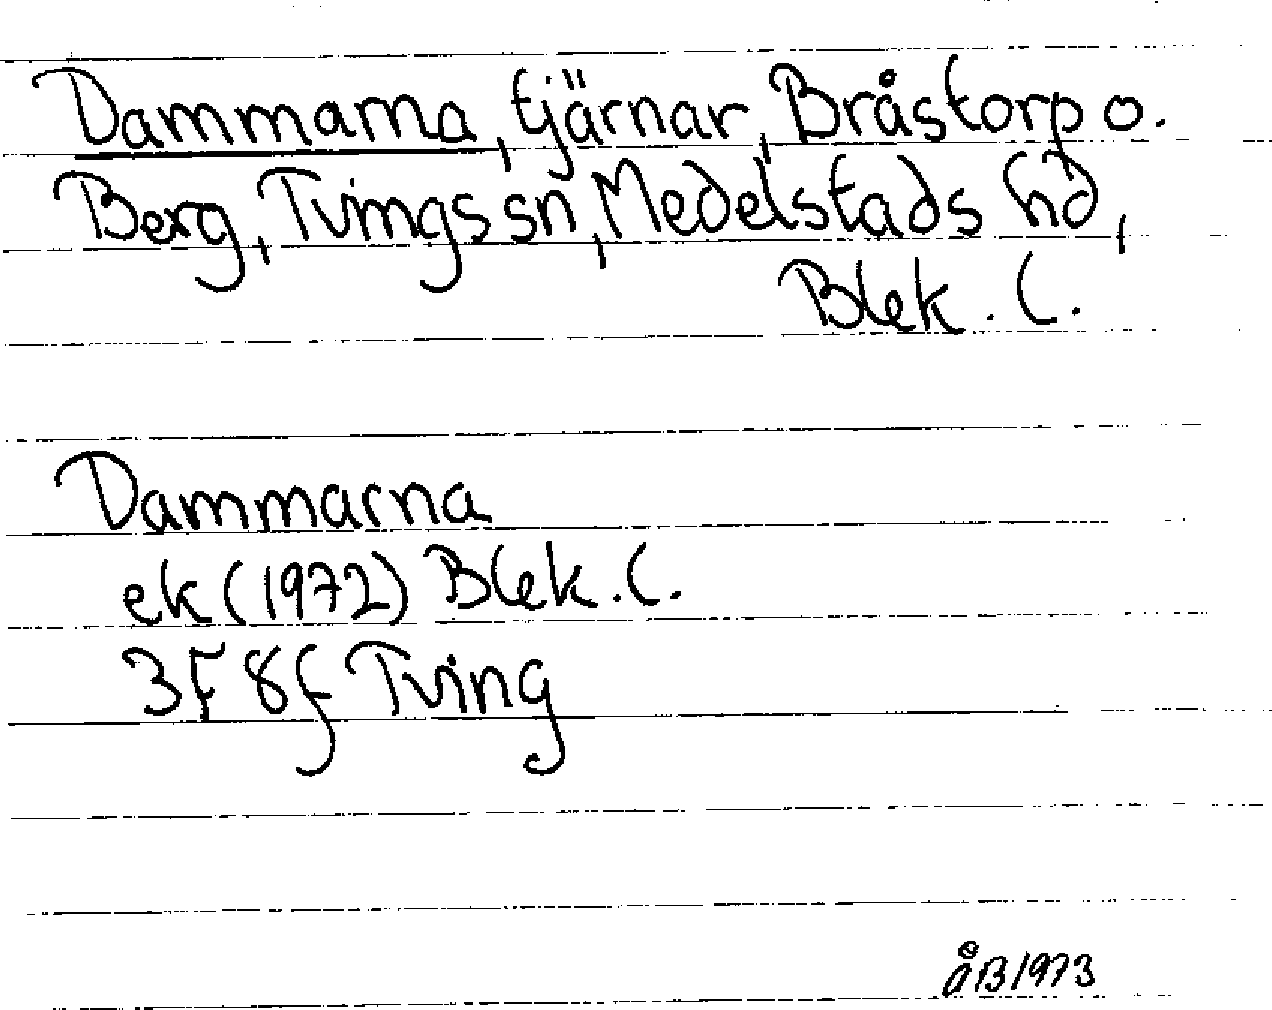 Dammarna, tjärnar, Bråstorp o.
Berg, Tvings sn, Medelstads hd,
Blek. l.
Dammarna
ek (1972) Blek. l.
3F 8f Tving
ÅB 1973